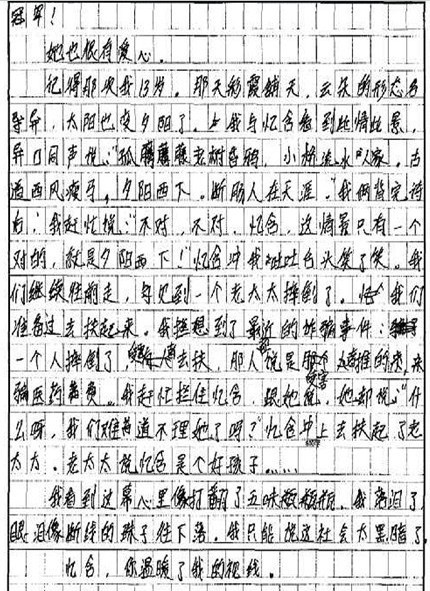 冠军！
她也很有爱心。
记得那次我13岁。那天彩霞铺天，云朵的形态各
导异，太阳也变夕阳了。当我与忆含看到此情此景，
异口同声说：“孤藤老树昏鸦，小桥流水人家。古
道西风瘦马，夕阳西下。断肠人在天涯。”我俩背完诗
后，我赶忙说：“不对，不对，忆含，这情景只有一个
对的，就是夕阳西下！”忆含冲我吐吐舌头笑了笑。我
们继续往前走，看见到一个老太太摔倒了。我们
准备过去扶起来。我猛想到了最近的诈骗事件：
一个人摔倒了，去扶，那人说是推的，来
骗医药费。我赶忙拦住忆含，跟她说，她却说：“什
么呀，我们难道不理她了吗？”忆含上去扶起了老
太太。老太太说忆含是个好孩子……
我看到这幕心里像打翻了五味瓶，我落泪了，
眼泪像断线的珠子往下落。我只能说这社会太黑暗了。
忆含，你温暖了我的视线。